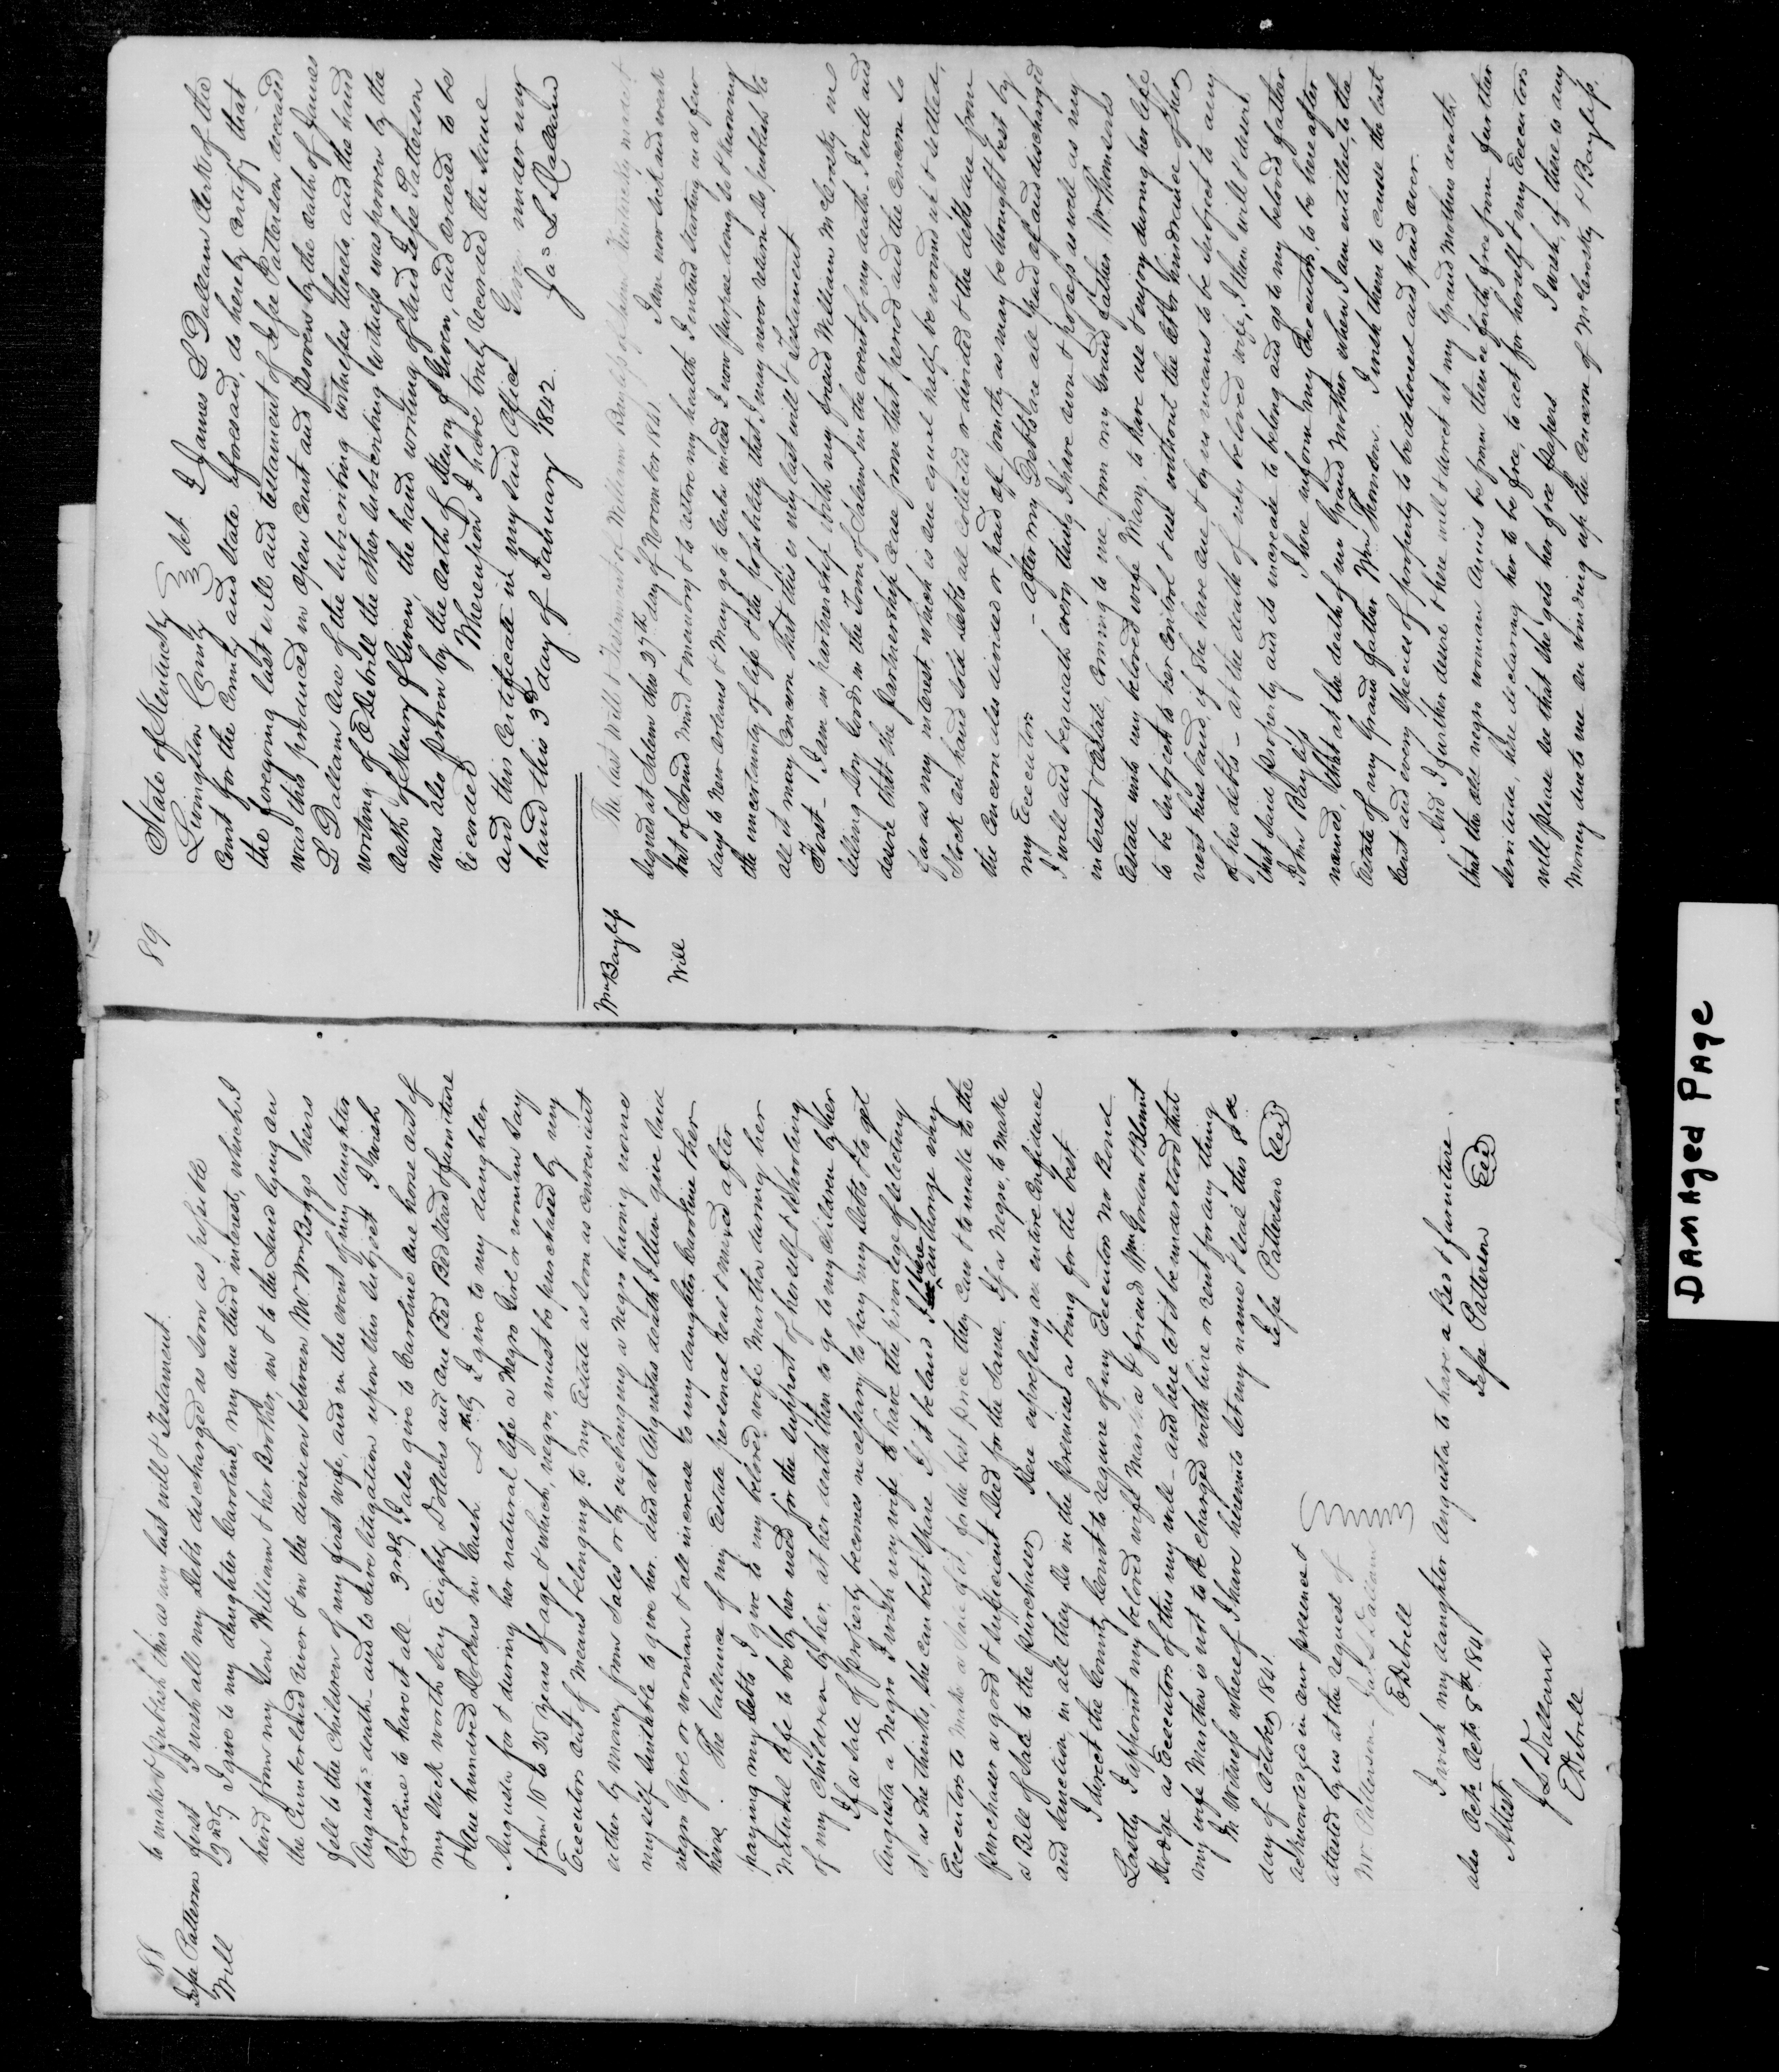 88
Jesse Patterson
Will
to make & publish this as my last will & Testament.
first I wish all my debts discharged as soon as possible
2ndly I give to my daughter Caroline, my one third interest, which I
heird from my Son William & her Brother, in & to the Land lying on
the Cumberland river & in the division between Mr. Wm Boggs heirs
fell to the Children of my first wife, and in the event of my daughter
Augusta's death and to save litigation upon this subject I wish
Caroline to have it all 3rdly I also give to Caroline one horse out of
my Stock worth say Eighty Dollars and one Bed Bed Stead & furniture
& One hundred Dollars in Cash 4thly I give to my daughter
Augusta for & during her natural life a Negro Girl or woman say
from 10 to 25 years of age & which, negro, must be purchased by my
Executors out of means belonging to my Estate as soon as convenient
either by money from Sales or by exchanging a Negro having none
myself suitable to give her. and at Augustas death I then give said
negro Girl or woman & all increase to my daughter Caroline & her
heirs. The ballance of my Estate personal real & mixed after
paying my debts I give to my beloved wife Martha during her
natural life to be by her used for the support of herself & Schooling
of my Children by her, at her death then to go to my Children by her
If a sale of property becomes necessary to pay my debts, & to get
Augusta a Negro I wish my wife to have the privilege of selecting
it, as she thinks, she can best spare If it be land I here authorize my
Executors to make a sale of it for the best price they can & to make to the
purchaser a good & sufficient Deed for the same. If a Negro, to make
a Bill of Sale to the purchaser Here expressing an entire confidence
and sanction, in all they do in the premises as being for the best
I direct the County Court to require of my Executors no Bond
Lastly I appoint my beloved wife Martha & friends Wm Gordon & Blount
Hodge as Executors of this my will and here let it be understood that
my wife Martha is not to be charged with hire or rent for any thing
In Witness whereof I have hereunto set my name & Seal this 8th
day of October 1841.
Jesse Patterson Seal
acknowledged in our presence &
attested by us at the request of
Mr Patterson Jas L Dallam
E Debrill
I wish my daughter Augusta to have a Bed & furniture.
also Octo Octo 8th 1841
Jesse Patterson Seal
Attest
J L Dallams
E Debrill
89
State of Kentucky
Livingston County Sct I James L Dallam Clerk of the
Court for the County and State aforesaid, do hereby certify that
the foregoing last will and testament of Jesse Patterson deceased
was this produced in open Court and proven by the oath of James
L Dallam one of the subscribing witnesses thereto, and the hand
writing of E Debrill the other subscribing witness was proven by the
oath of Henry F Given, the hand writing of said Jesse Patterson
was also proven by the oath of Henry F Given, and ordered to be
recorded Whereupon I have truly recorded the same
and this Certificate in my said office Given under my
hand this 3d day of January 1842.
Jas L Dallam
Wm Bayliss
Will
The last Will & Testament of William Bayliss of Salem Kentucky
signed at Salem this 27th day of November 1841 I am now sick and weak
but of sound mind & memory & to restore my health I intend starting in a few
days to New Orleans & may go to Cuba indeed I now purpose doing so & knowing
the uncertainty of life & the probability that I may never return do publish to
all it may concern that this is my last will & Testament
First I am in partnership with my friend William McCrosky in
selling Dry Goods in the Town of Salem in the event of my death I will and
desire that the partnership cease from that period and the concern so
far as my interest which is one equal half be wound up & settled,
Stock on hand sold debts all collected or divided & the debts due from
the concern also divided or paid off jointly as may be thought best by
my Executors After my debts are all paid off and discharged
I will and bequeath every thing I have own & possess as well as my
interest & Estate coming to me from my Grand father Wm Thomsons
Estate unto my beloved wife Mary, to have use & enjoy during her life
to be subject to her control & use without the let or hindrance of her
next husband, if she have one & by no means to be subject to any
of his debts at the death of my beloved wife, I then will & desire
that said property and its increase to belong and go to my beloved father
John Bayliss I here inform my Executors, to be here after
named, that at the death of my Grand Mother when I am entitled to the
Estate of my Grand father Wm Thomson. I wish them to cause the last
Cent and every species of property to be delivered and paid over.
And I further desire & here will & direct at my Grand Mothers death
that the old negro woman Annis be from thence forth free from further
servitude, here declaring her to be free, to act for herself & my Executors
will please see that she gets her free papers I wish, if there is any
money due to me on winding up the Concern of McCrosky & Bayliss.
DAMAGED PAGE